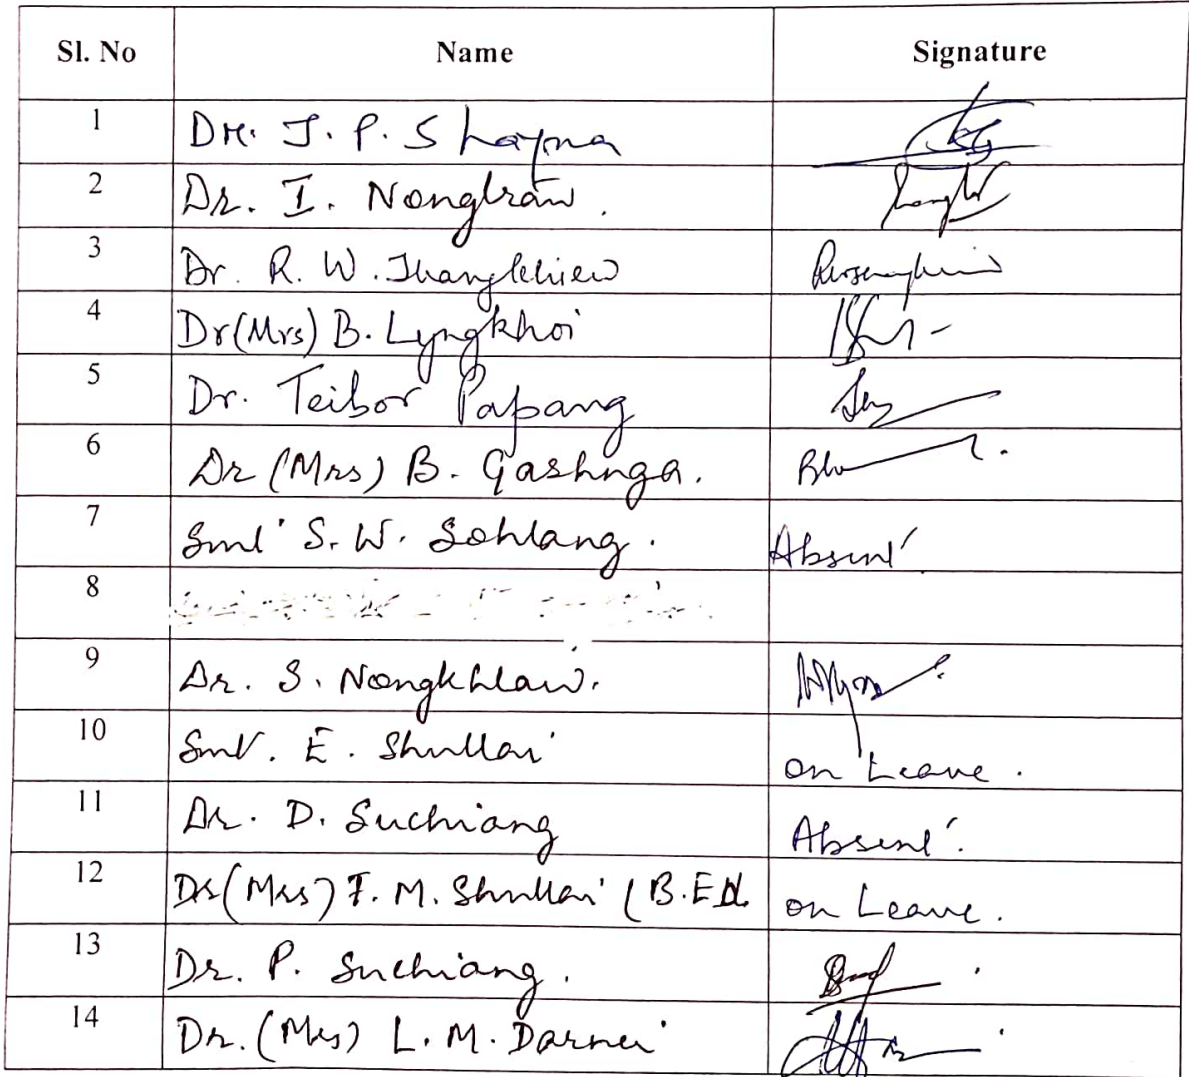 Sl. No Name Signature
1 Dr. J. P. Shayma
2 Dr. I. Nongbraw.
3 Dr. R. W. Thangkhiew
4 Dr(Mrs) B. Lyngkhoi
5 Dr. Teibor Papang
6 Dr (Mrs) B. Gashnga.
7 Smt S. W. Sohlang. Absent
8
9 Dr. S. Nongkhlaw.
10 Smt. E. Shullai on Leave.
11 Dr. D. Suchiang Absent.
12 Dr(Mrs) F. M. Shullai (B.Ed. on Leave.
13 Dr. P. Suchiang.
14 Dr. (Mrs) L. M. Darnei